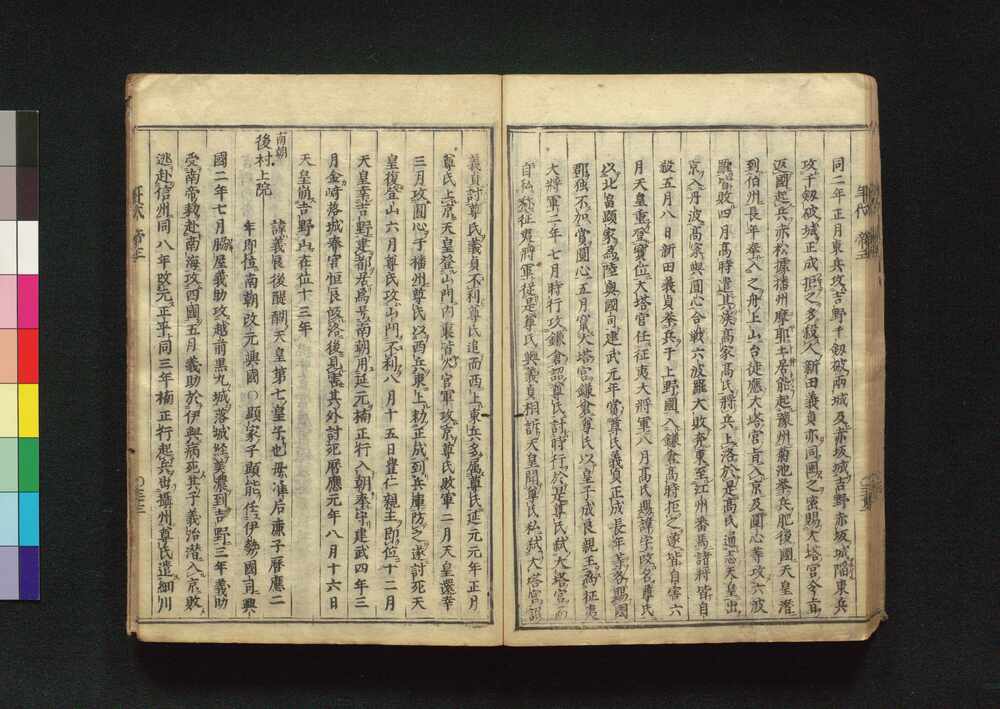 同二年正月東兵攻吉野千劔破兩城及赤坂城吉野赤坂城陷東兵
攻千劔破城正成拒之多殺人新田義貞亦同圍之密賜大塔宮令旨
返國起兵赤松據播州摩耶土居能起豫州菊池舉兵肥後國天皇潜
到伯州長年奉入之舟上山台徒應大塔宮入京及圓心等攻六波
羅皆敗四月高時遣高家高氏將兵上洛於是高氏通志天皇出
京入丹波高家與圓心合戰六波羅大敗奔東至江州番馬諸將皆自
殺五月八日新田義貞舉兵于上野國入鎌倉高時拒之遂皆自害六
月天皇重登寶位大塔宮任征夷大將軍八月高氏賜諱字改名尊氏
以北畠顯家為陸奥國司建武元年賞尊氏義貞正成長年等各賜國
郡獨不加賞圓心五月竄大塔宮鎌倉尊氏以皇子成良親王為征夷
大將軍二年七月時行攻鎌倉詔尊氏討時行於是尊氏弑大塔宮而
自私稱征夷將軍從是尊氏與義貞相訴天皇聞尊氏私弑大塔宮詔
義貞討尊氏義貞不利尊氏追而西上東兵多属尊氏延元元年正月
尊氏入京天皇登山門内裏皆火官軍攻京尊氏敗軍二月天皇還幸
三月攻圓心于播州尊氏以西兵東上勅正成到兵庫防之遂討死天
皇復登山六月尊氏攻山門不利八月十五日豊仁親王即位十二月
天皇幸吉野建都居焉号南朝用延元楠正行入朝奉守建武四年三
月金﨑落城奉宮恒良歸洛後見害其外討死暦應元年八月十六日
天皇崩吉野山在位十三年
南朝
後村上院
諱義良後醍醐天皇第七皇子也母准后廉子暦應二
年即位南朝改元興國○顯家子顯能任伊勢國司興
國二年七月脇屋義助攻越前黒丸城落城經美濃到吉野三年義助
受南帝勅赴南海攻四國五月義助於伊與病死其子義治潜入京敗
逃赴信州同八年改元正平同三年楠正行起兵出攝州尊氏遣細川